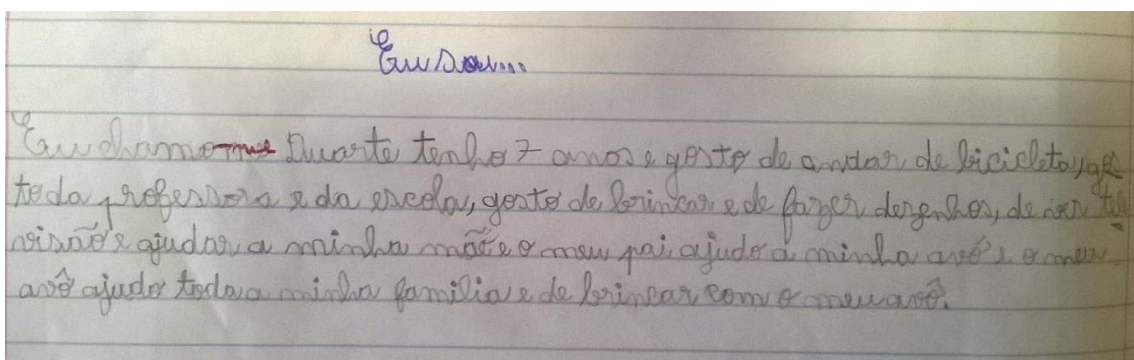 Eu sou...
Eu chamo-me Duarte tenho 7 anos e gosto de andar de bicicleta, gos-
to da professora e da escola, gosto de brincar e de fazer desenhos, de ver tele
visão e ajudar a minha mãe e o meu pai ajudo a minha avó e o meu
avô ajudo toda a minha familia e de brincar com o meu avô.